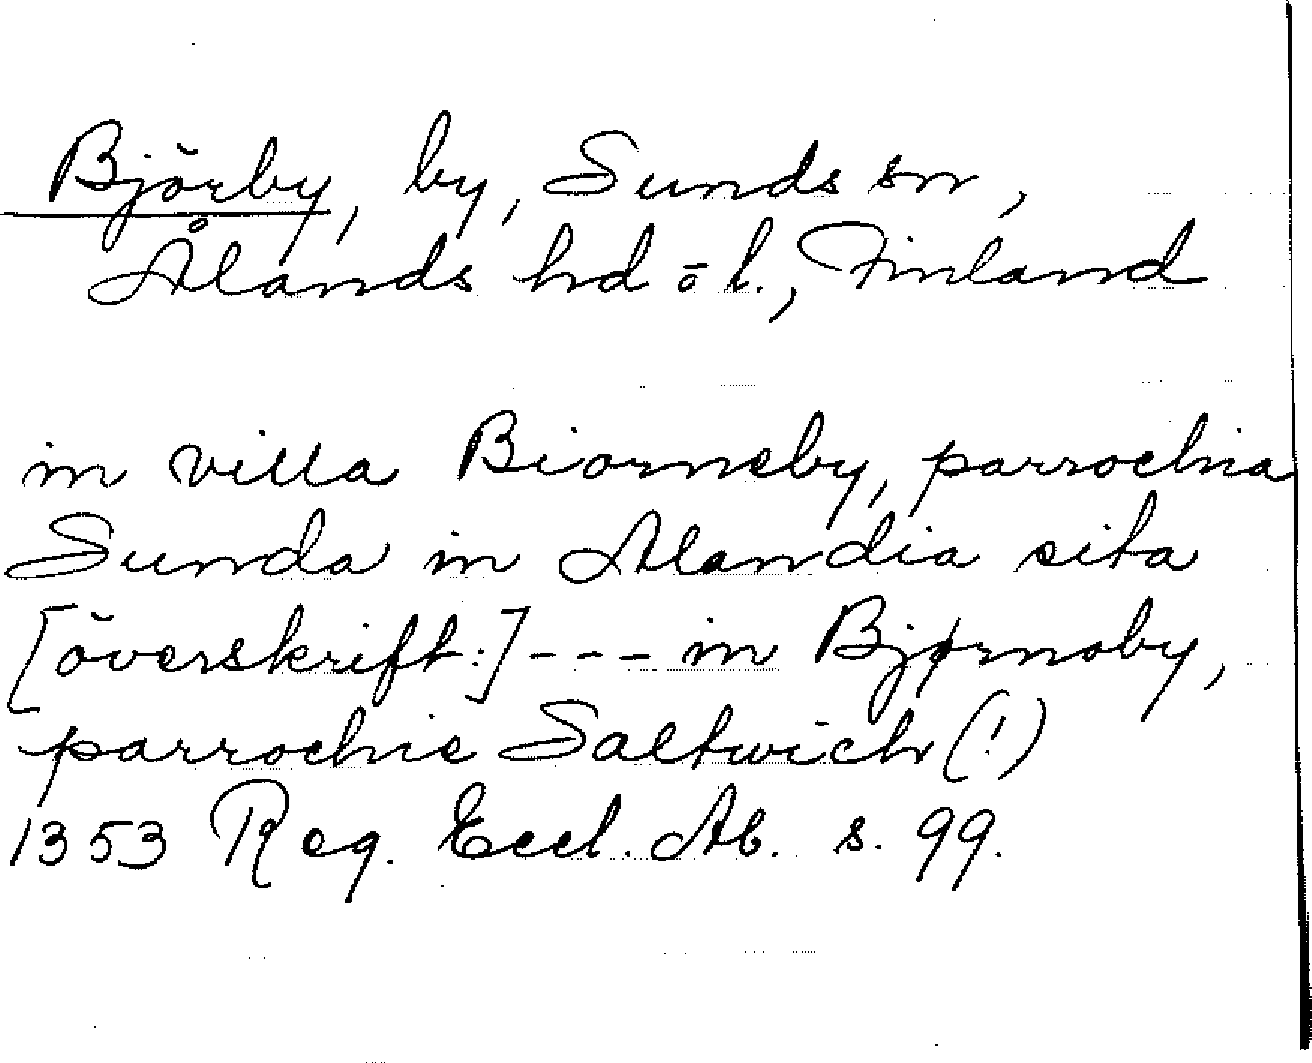 Björby, by, Sunds sn,
Ålands hd o l., Finland
in villa Biorneby, parrochia
Sunda in Alandia sita
[överskrift:] --- in Bjørnoby,
parrochie Saltwich (!)
1353 Reg. Eccl. Ab. s. 99.